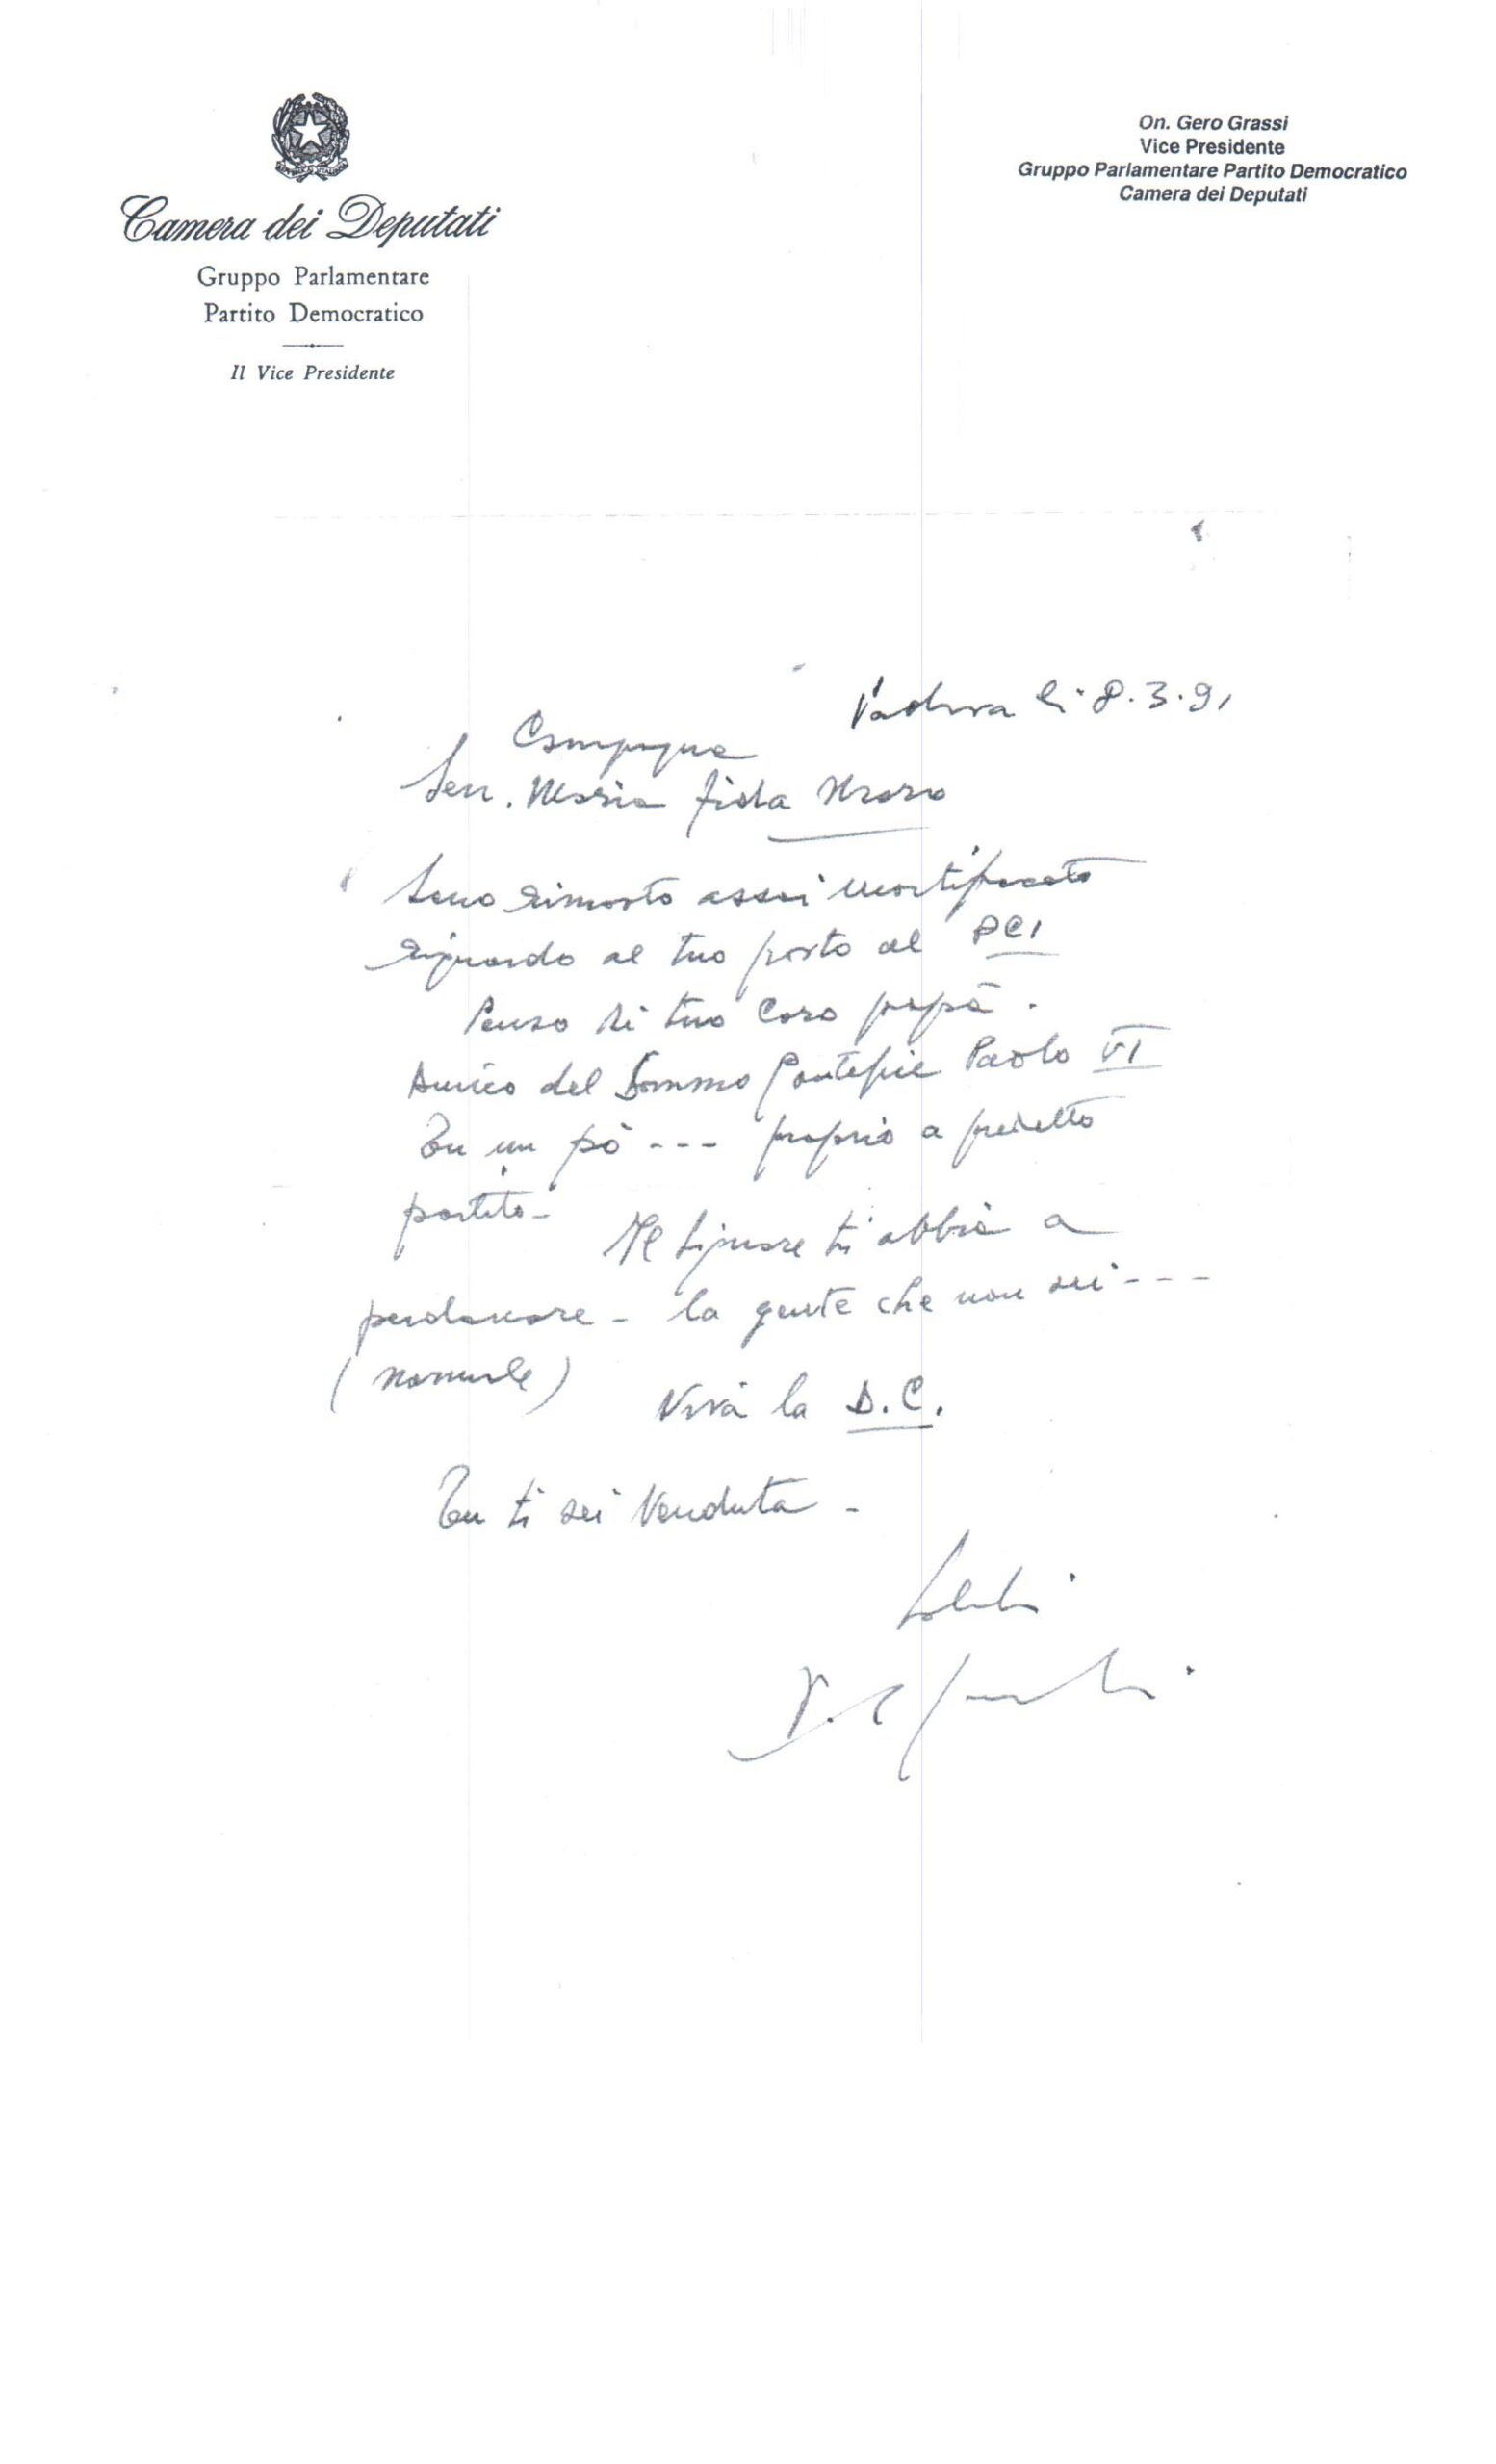 Camera dei Deputati
Gruppo Parlamentare
Partito Democratico
Il Vice Presidente
On. Gero Grassi
Vice Presidente
Gruppo Parlamentare Partito Democratico
Camera dei Deputati
Padova li 8.3.91
Compagna
Sen. Maria Fida Moro
Sono rimasto assai mortificato
riguardo al tuo posto al PCI
Penso di tuo Caro papà.
Amico del Sommo Paolo VI
Tu un pò --- proprio a predetto
partito-
Il Signore ti abbia a
perdonare - la gente che non sei ---
(normale)
Viva la D.C.
Tu ti sei Venduta -
Saluti